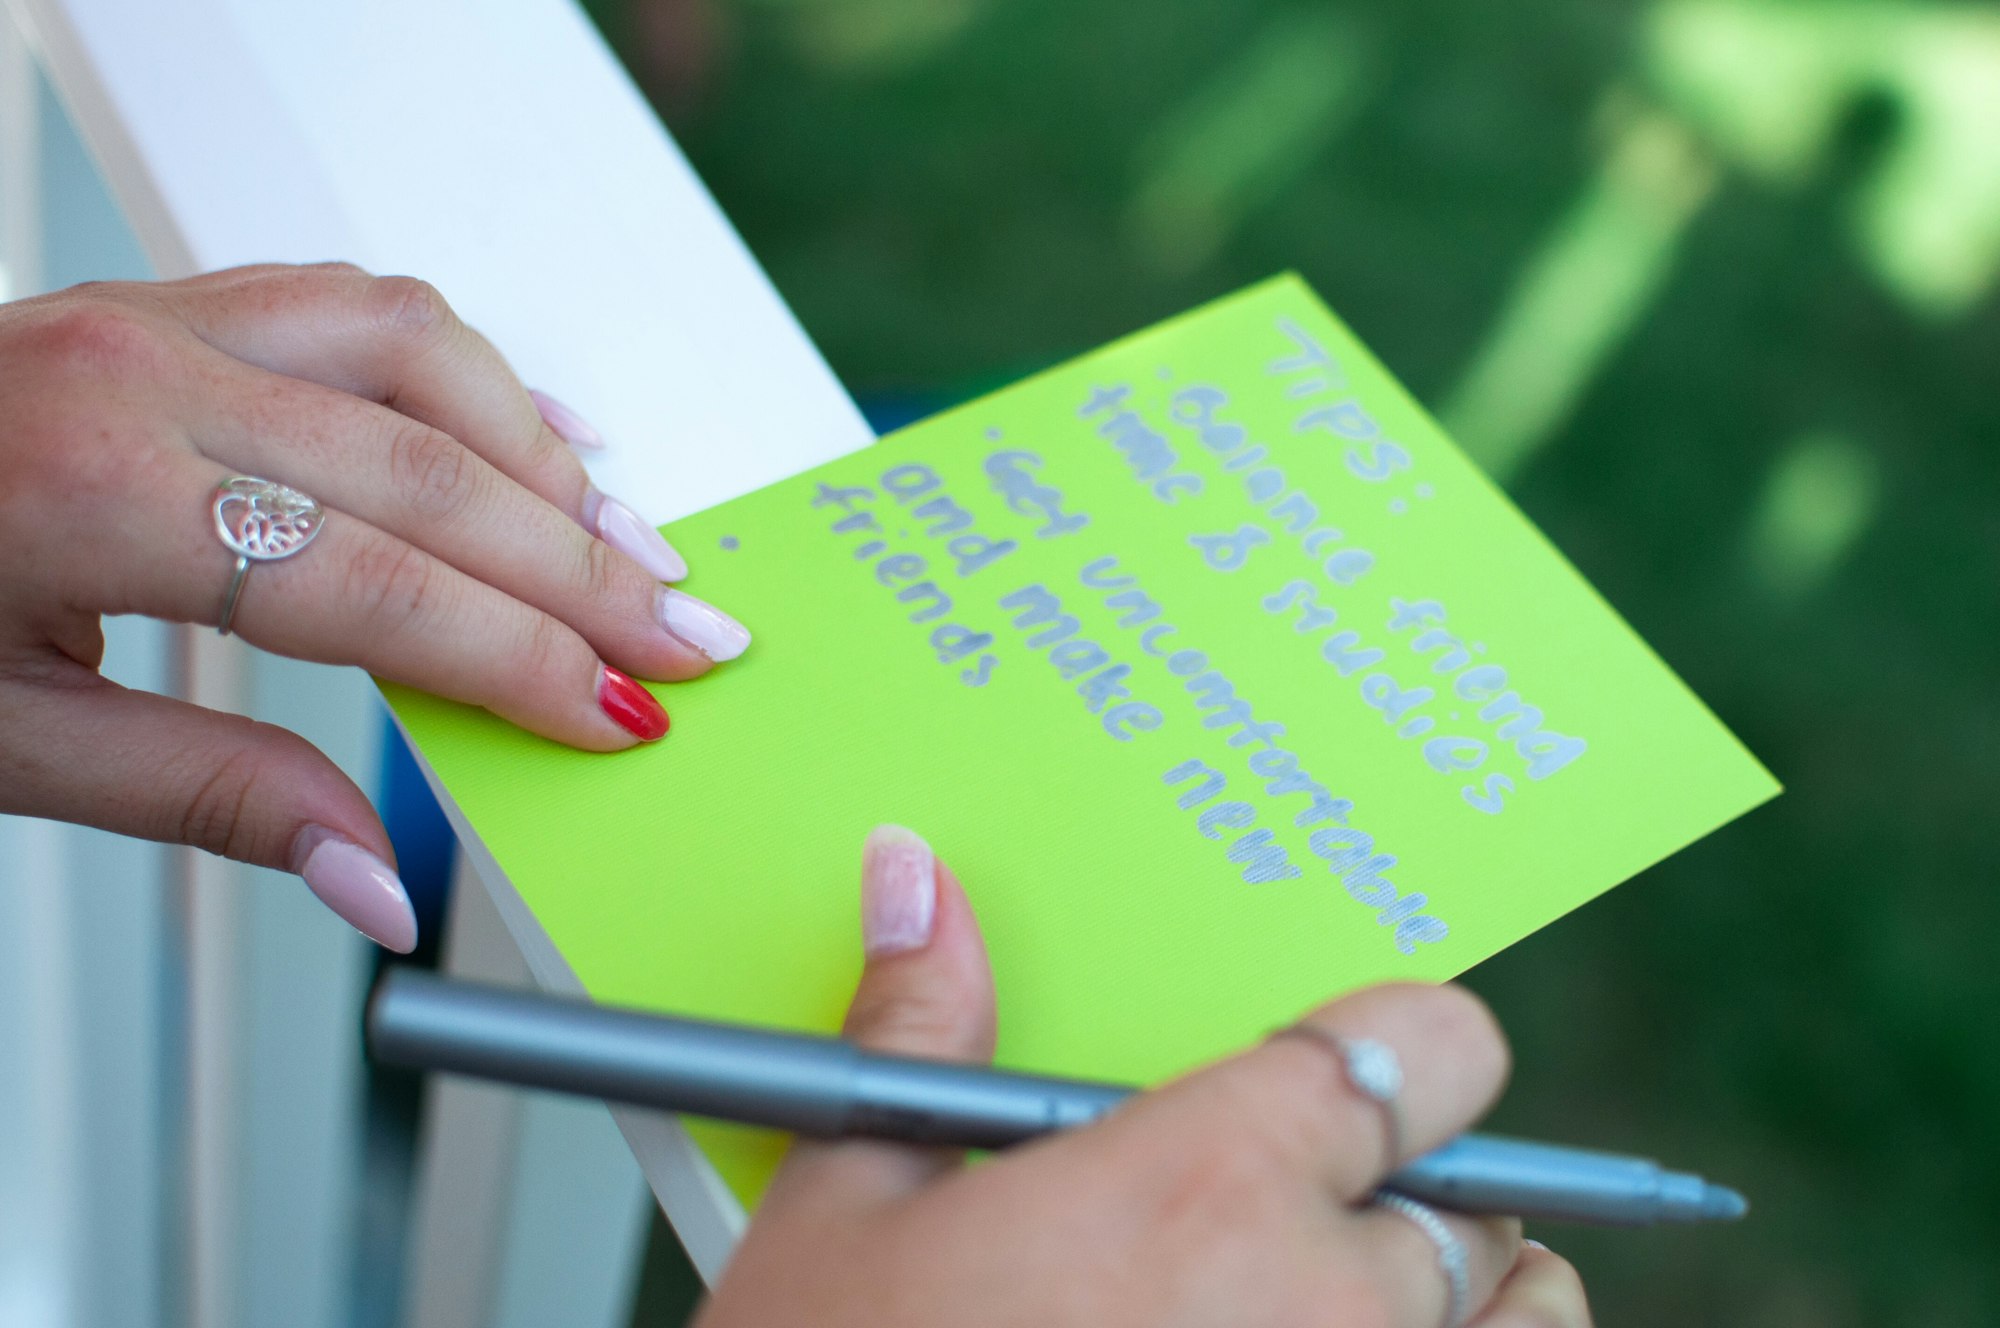 TIPS:
· Balance friend
time & studies
· Get uncomfortable
and make new
friends
·